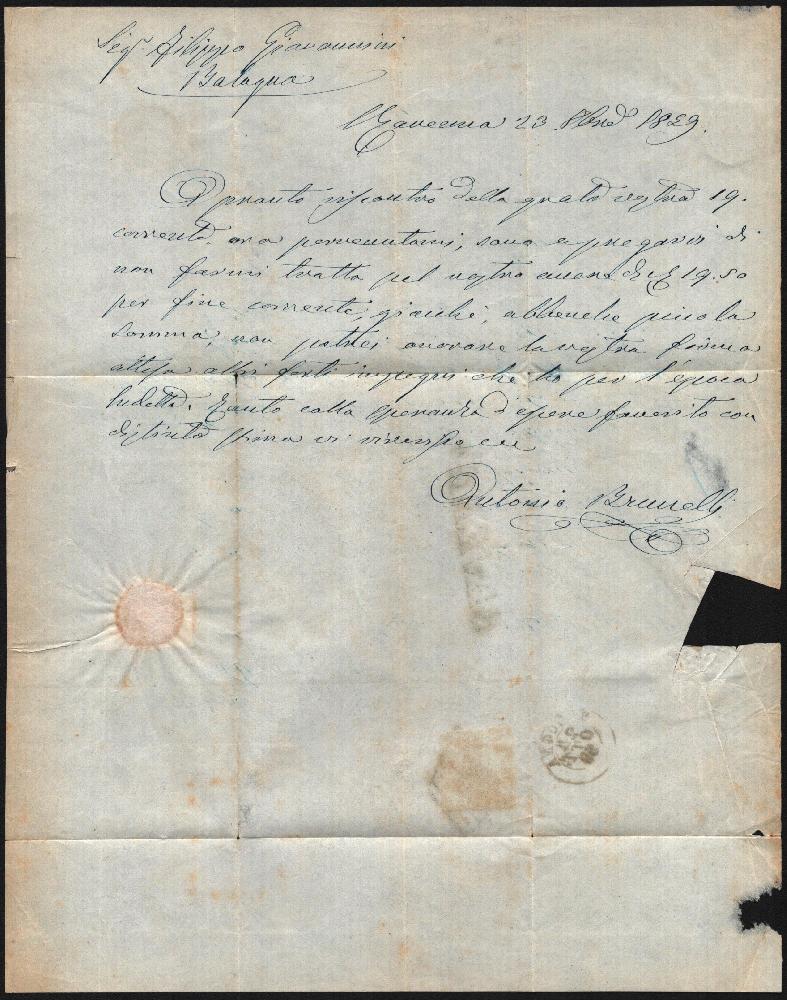 Sigr Filippo Giovannini
Bologna
Ravenna 23 1859.
A pronto riscontro della grata vostra 19.
corrente ora pervenutami, sono a pregarvi di
non farmi tratta pel vostro avere di 19.50
per fine corrente, giacchè, abbenche piccola
somma, non potrei onorare la vostra firma
attesi altri forti impegni che ho per l'epoca
sudetta. Tanto colla speranza d'essere favorito con
distinta stima vi riverisco
Antonio Brunelli